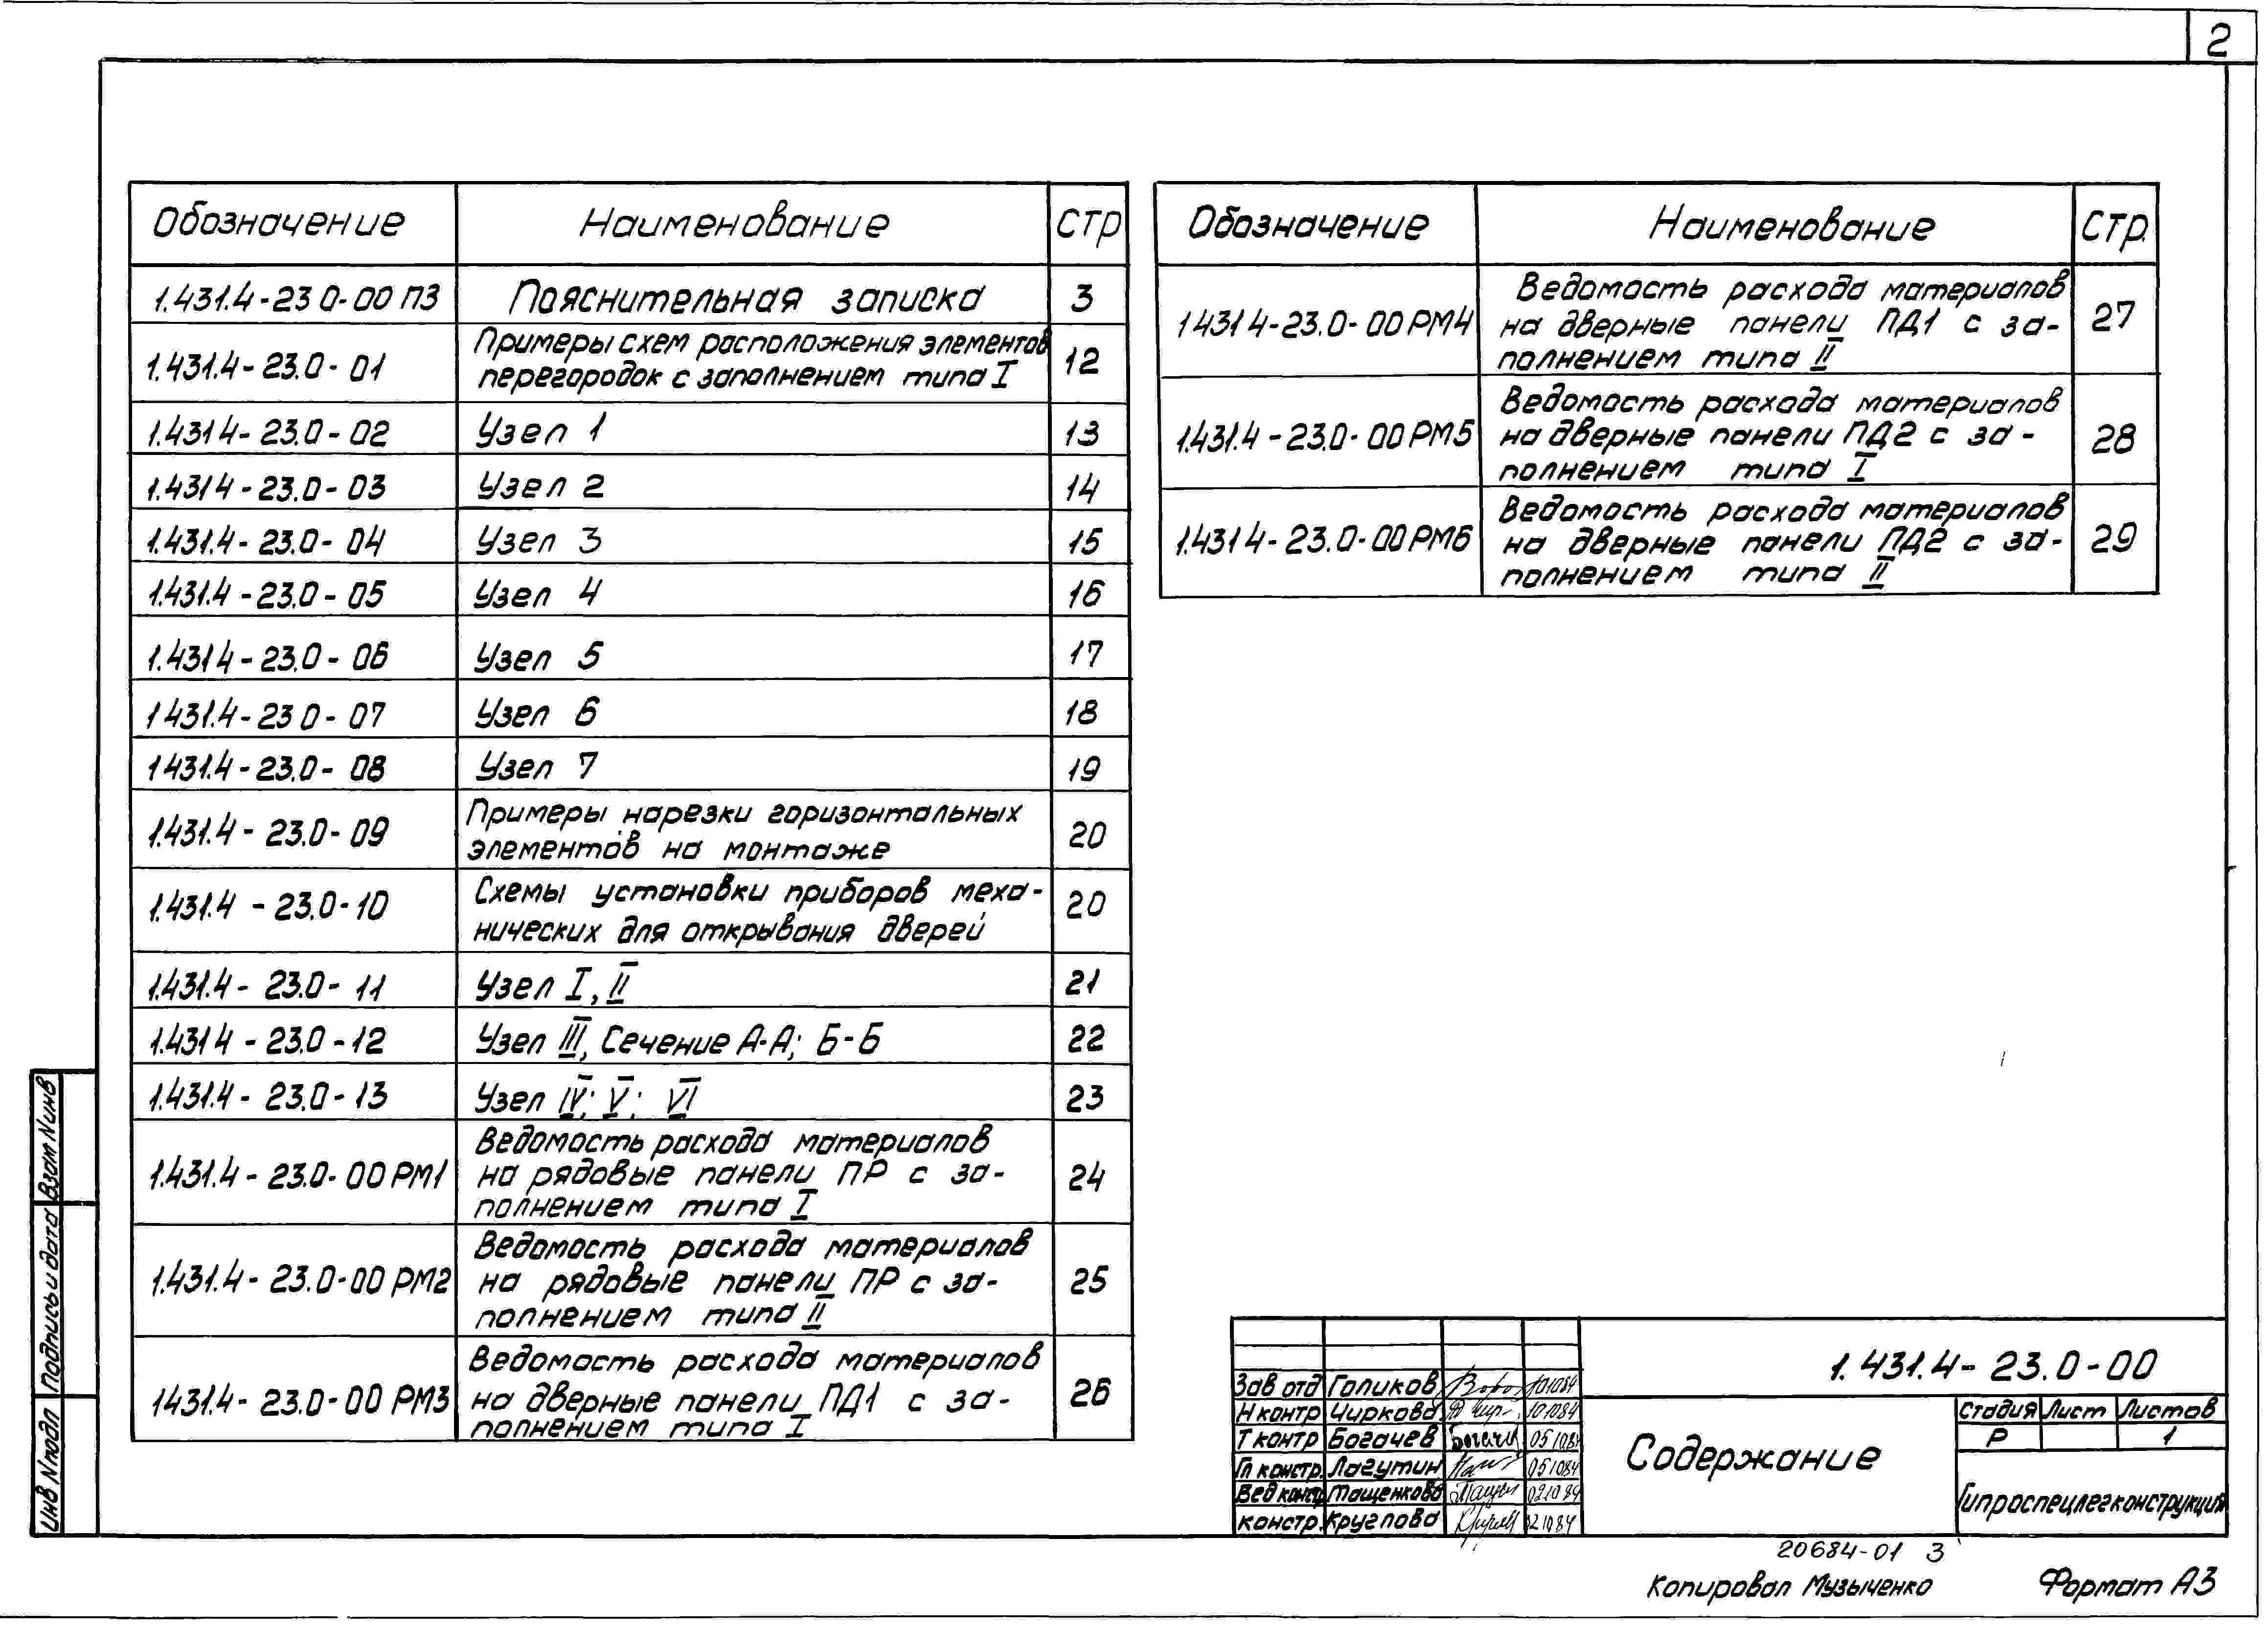 2
Обозначение Наименование Стр
1.431.4-23 0-00 ПЗ Пояснительная записка 3
1.431.4-23.0-01 Примеры схем расположения элементов 12
перегородок с заполнением типа I
1.431 4-23.0-02 Узел 1 13
1.431 4-23.0-03 Узел 2 14
1.431.4-23.0-04 Узел 3 15
1.431.4-23.0-05 Узел 4 16
1.431 4-23.0-06 Узел 5 17
1 431.4-23 0-07 Узел 6 18
1 431.4-23.0-08 Узел 7 19
1.431.4-23.0-09 Примеры нарезки горизонтальных 20
элементов на монтаже
1.431.4-23.0-10 Схемы установки приборов меха- 20
нических для открывания дверей
1.431.4-23.0-11 Узел I, II 21
1.431 4-23.0-12 Узел III, Сечение А-А; Б-Б 22
1.431.4-23.0-13 Узел IV; V; VI 23
1.431.4-23.0-00 РМ1 Ведомость расхода материалов 24
на рядовые панели ПР с за-
полнением типа I
1.431.4-23.0-00 РМ2 Ведомость расхода материалов 25
на рядовые панели ПР с за-
полнением типа II
1431.4-23.0-00 РМ3 Ведомость расхода материалов 26
на дверные панели ПД1 с за-
полнением типа I
Обозначение Наименование Стр.
1 431 4-23.0-00 РМ4 Ведомость расхода материалов 27
на дверные панели ПД1 с за-
полнением типа II
1.431.4-23.0-00 РМ5 Ведомость расхода материалов 28
на дверные панели ПД2 с за-
полнением типа I
1.431 4-23.0-00 РМ6 Ведомость расхода материалов 29
на дверные панели ПД2 с за-
полнением типа II
Взам N инв
Подпись и дата
Инв N подл
1.431.4-23.0-00
Зав отд Голиков 101084
Н контр Чиркова 101084
Т контр Богачев Богачев 051084
Гл констр. Лагутин 051084
Вед констр Тащенкова 021084
констр. Круглова 021084
Содержание
Стадия Лист Листов
Р 1
Гипроспецлегконструкция
20684-01 3
Копировал Музыченко Формат А3